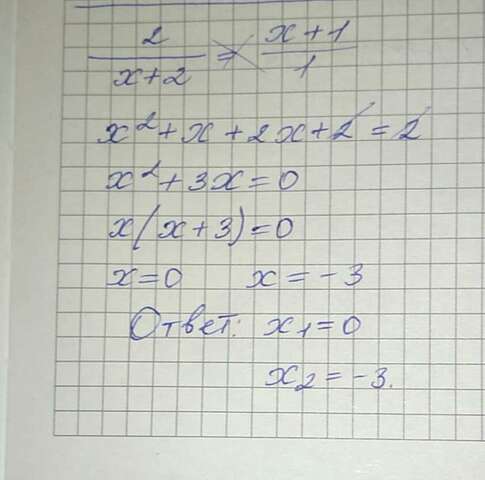 2/(x+2) = (x+1)/1
x² + x + 2x + 2 = 2
x² + 3x = 0
x(x+3) = 0
x=0 x = -3
Ответ: x₁=0
x₂ = -3.